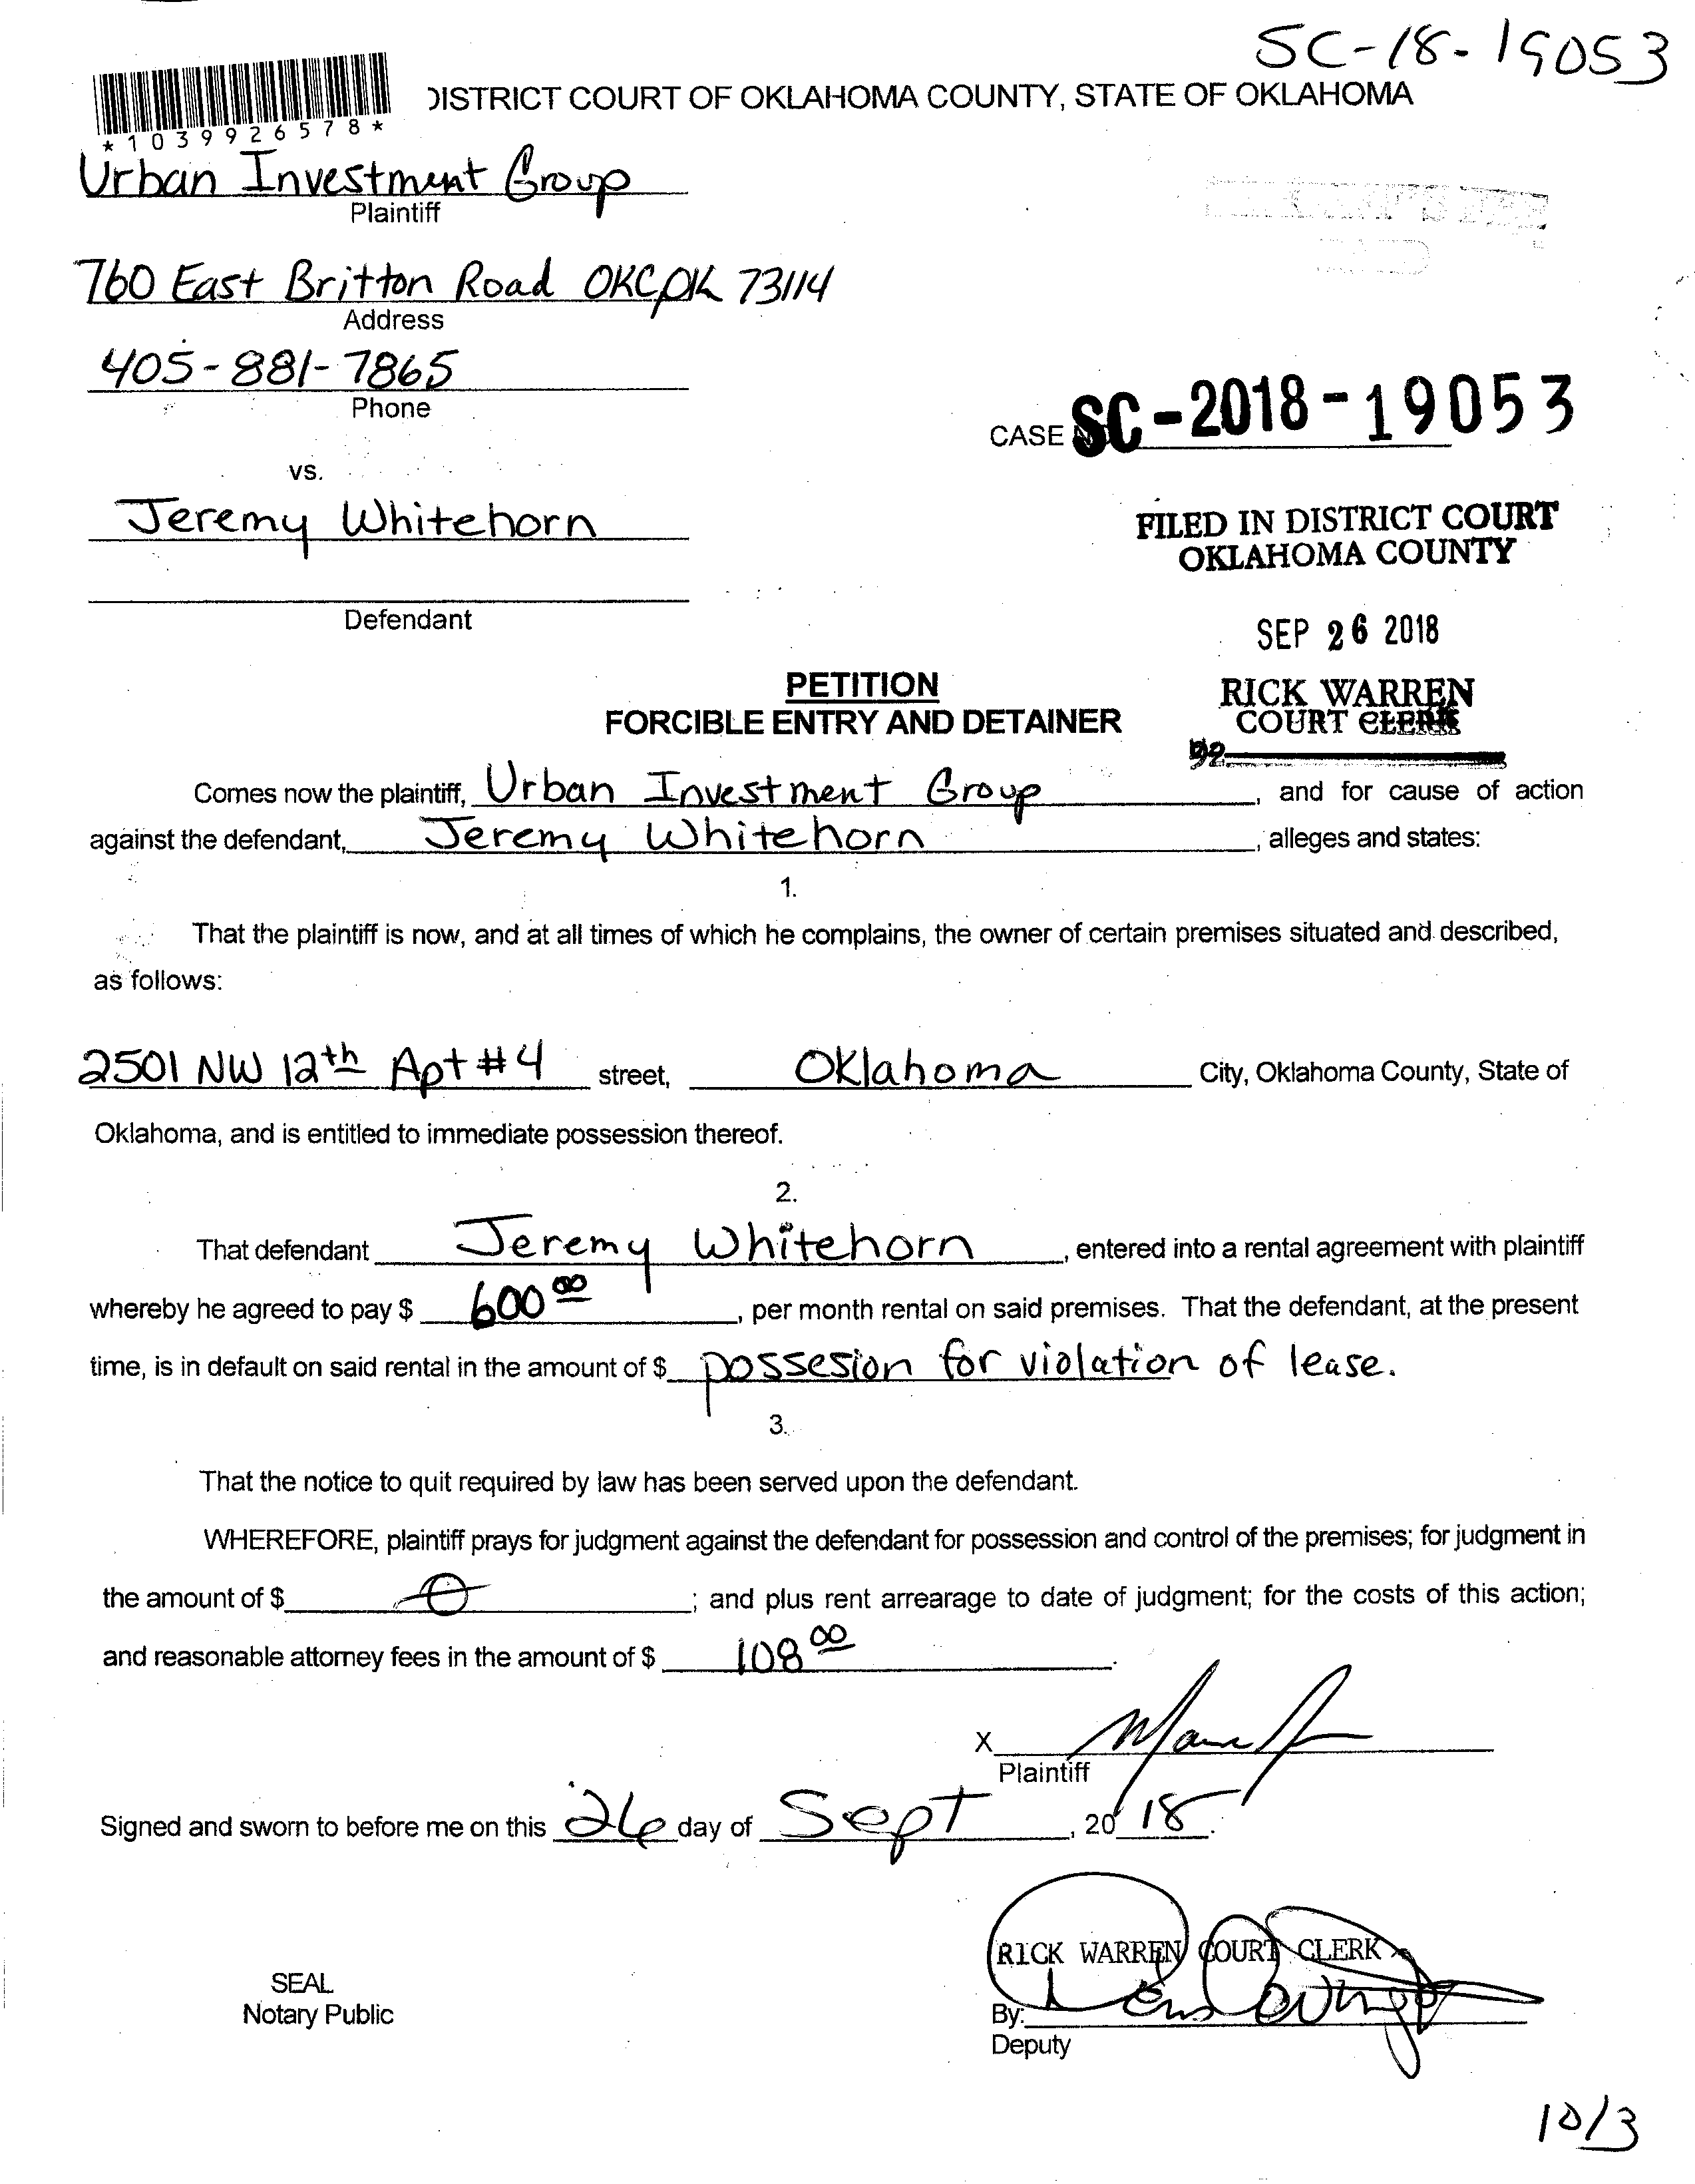 SC-18-19053
DISTRICT COURT OF OKLAHOMA COUNTY, STATE OF OKLAHOMA
*1039926578*
Urban Investment Group
Plaintiff
760 East Britton Road OKC, OK 73114
Address
405-881-7865
Phone
CASE SC-2018-19053
vs.
Jeremy Whitehorn
FILED IN DISTRICT COURT
OKLAHOMA COUNTY
Defendant
SEP 26 2018
PETITION
FORCIBLE ENTRY AND DETAINER
RICK WARREN
COURT CLERK
Comes now the plaintiff, Urban Investment Group, and for cause of action
against the defendant, Jeremy Whitehorn, alleges and states:
1.
That the plaintiff is now, and at all times of which he complains, the owner of certain premises situated and described,
as follows:
2501 NW 12th Apt #4 street, Oklahoma City, Oklahoma County, State of
Oklahoma, and is entitled to immediate possession thereof.
2.
That defendant Jeremy Whitehorn, entered into a rental agreement with plaintiff
whereby he agreed to pay $ 600 00, per month rental on said premises. That the defendant, at the present
time, is in default on said rental in the amount of $ possesion for violation of lease.
3.
That the notice to quit required by law has been served upon the defendant.
WHEREFORE, plaintiff prays for judgment against the defendant for possession and control of the premises; for judgment in
the amount of $ 0; and plus rent arrearage to date of judgment; for the costs of this action;
and reasonable attorney fees in the amount of $ 108 00.
X
Plaintiff
Signed and sworn to before me on this 26 day of Sept, 2018.
RICK WARREN COURT CLERK
SEAL
Notary Public
By:
Deputy
10/3